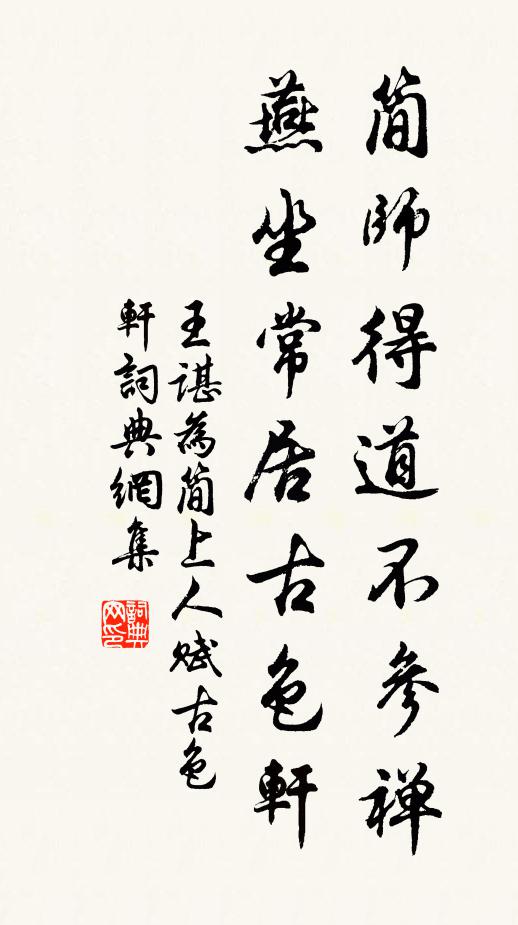 簡師得道不參禅
燕坐常居古色軒
王諶為簡上人赋古色
軒詞典網集
詞典
网印